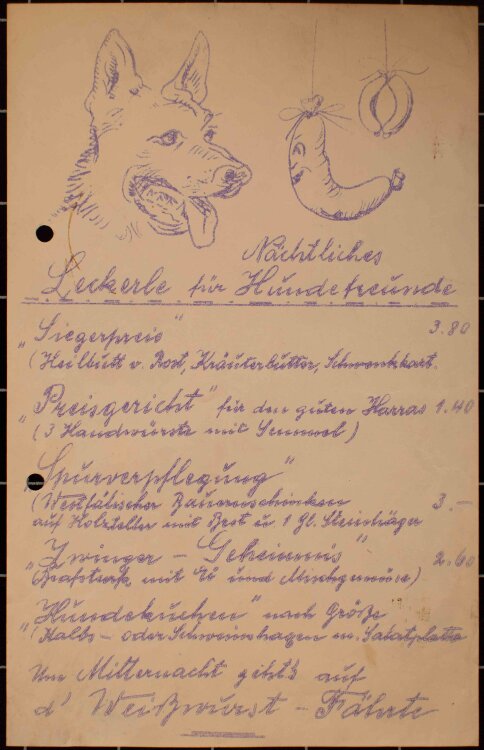 Nächtliches
Leckerle für Hundefreunde
„Siegerpreis" 3.80
(Heilbutt v. Rost, Kräuterbutter, Schwenkkart.
„Preisgericht" für den guten Harras 1.40
(3 Handwürste mit Semmel)
„Spurverpflegung"
(Westfälischer Bauernschinken 3.–
auf Holzteller mit Brot u 1 Gl. Steinhäger
„Zwinger – Geheimnis" 2.60
mit Ei und Mischgemüse)
„Hundekuchen" nach Größe
(Kalbs – oder Schweinshaxen m. Salatplatte
Um Mitternacht geht's auf
d' Weißwurst – Fährte